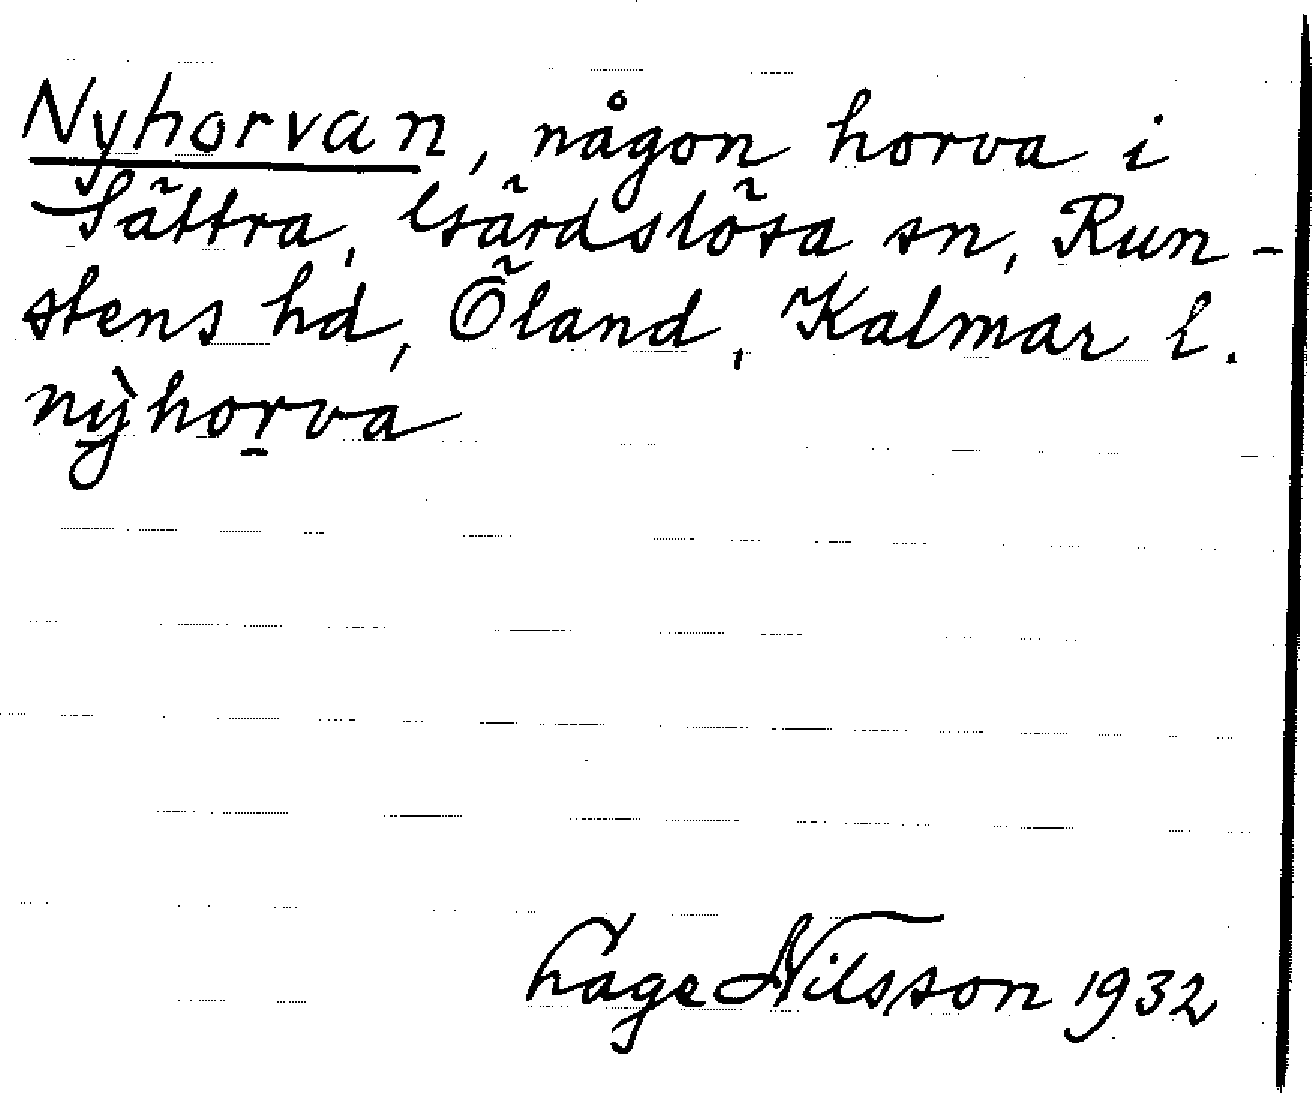 Nyhorvan, någon horva i
Sättra, Gärdslösa sn, Run-
stens hd, Öland, Kalmar l.
nỳhorva
Lage Nilsson 1932